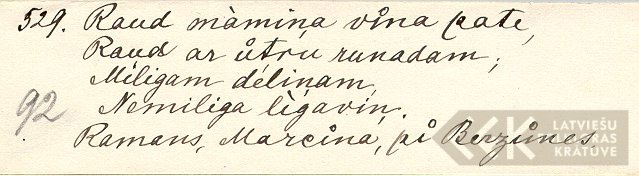 529. Raud màmiņa vi̊na pate,
Raud ar ůtrụ runadam;
Miligam délinam,
92 Nemiliga lìgaviņ.
Ramans, Marcina, pi̊ Berzůnes
LATVIEŠU
FOLKLORAS
KRĀTUVE